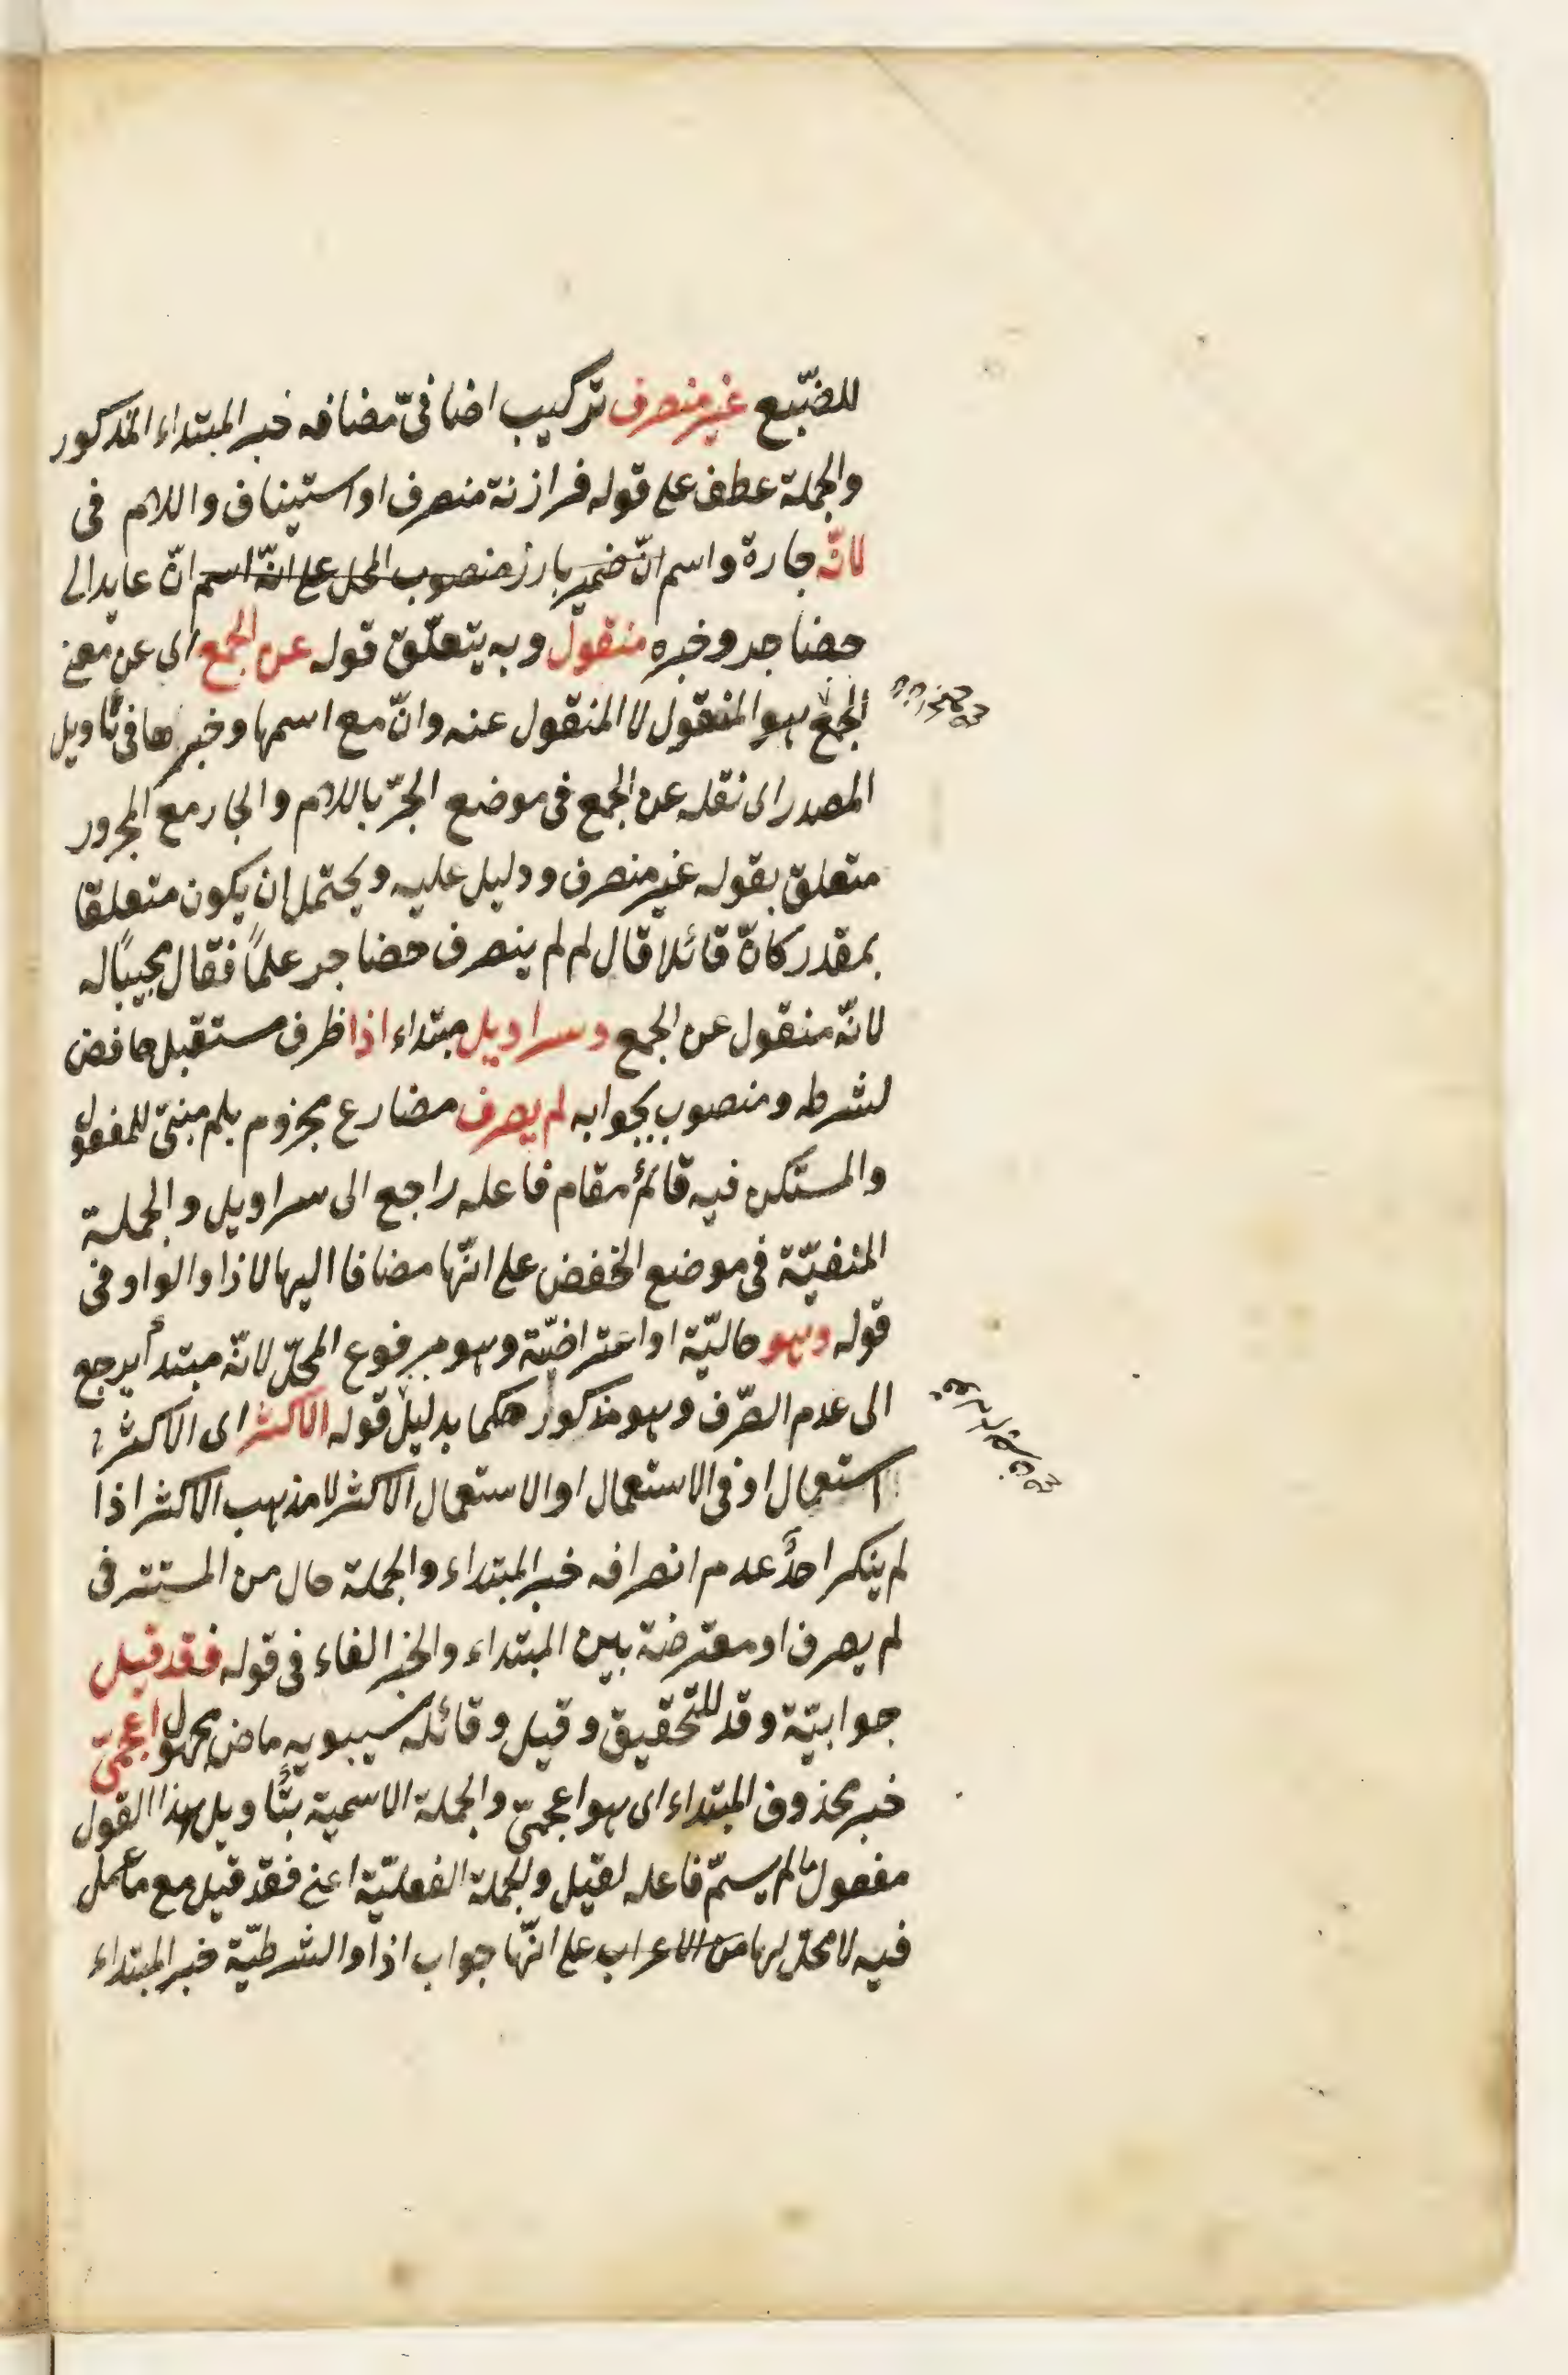 للضّبع غير منصرف تركيب اضافىّ مضافه خبر المبتداء المذكور
والجملة عطف على قوله فرازنة منصرف او استيناف واللام فى
لانّه جارة واسم انّ ضمير بارز منصوب المحل على انّه اسم انّ عايد الى
حضاجر وخبره منقول وبه يتعلّق قوله عن الجمع اى عن معنى
الجمع هو المنقول لا المنقول عنه وانّ مع اسمها وخبرها فى تأويل
المصدر اى نقله عن الجمع فى موضع الجرّ باللام والجار مع المجرور
متعلق بقوله غير منصرف ودليل عليه ويحتمل ان يكون متعلقا
بمقدر كانّه قائلا قال لم لم ينصرف حضاجر علمًا فقال مجيبًا له
لانّه منقول عن الجمع وسراويل مبتداء اذا ظرف مستقبل خافض
لشرطه ومنصوب بجوابه لم يصرف مضارع مجزوم بلم مبنىّ للمفعول
والمستكن فيه قائم مقام فاعله راجع الى سراويل والجملة
المنفيّة فى موضع الخفض على انّها مضافا اليها لاذا والواو فى
قوله وهو حاليّة او اعتراضيّة وهو مرفوع المحلّ لانّه مبتدأ يرجع
الى عدم الصّرف وهو مذكور حكما بدليل قوله الاكثر اى الاكثر
استعمال او فى الاستعمال او الاستعمال الاكثر لا مذهب الاكثر اذا
لم ينكر احدٌ عدم انصرافه خبر المبتداء والجملة حال من المستتر فى
لم يصرف او معترضة بين المبتداء والخبر الفاء فى قوله فقد قيل
جوابيّة وقد للتحقيق وقيل وقائله سيبويه ماض مجهول اعجمىّ
خبر محذوف المبتداء اى هو اعجمىّ والجملة الاسمية بتأويل هذا القول
مفعول ما لم يسمّ فاعله لقيل والجملة الفعليّة اعنى فقد قيل مع ما عمل
فيه لا محلّ لها من الاعراب على انّها جواب اذا والشرطيّة خبر المبتداء